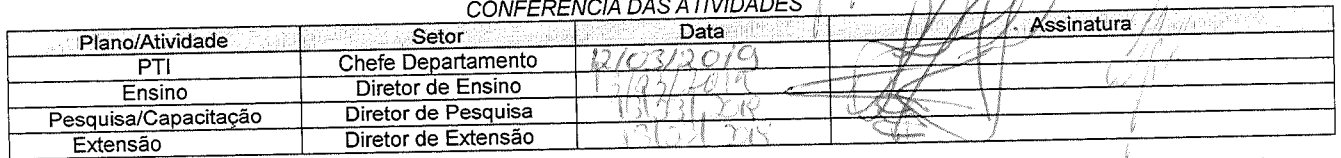 CONFERÊNCIA DAS ATIVIDADES
Plano/Atividade Setor Data Assinatura
PTI Chefe Departamento 12/03/2019
Ensino Diretor de Ensino
Pesquisa/Capacitação Diretor de Pesquisa
Extensão Diretor de Extensão